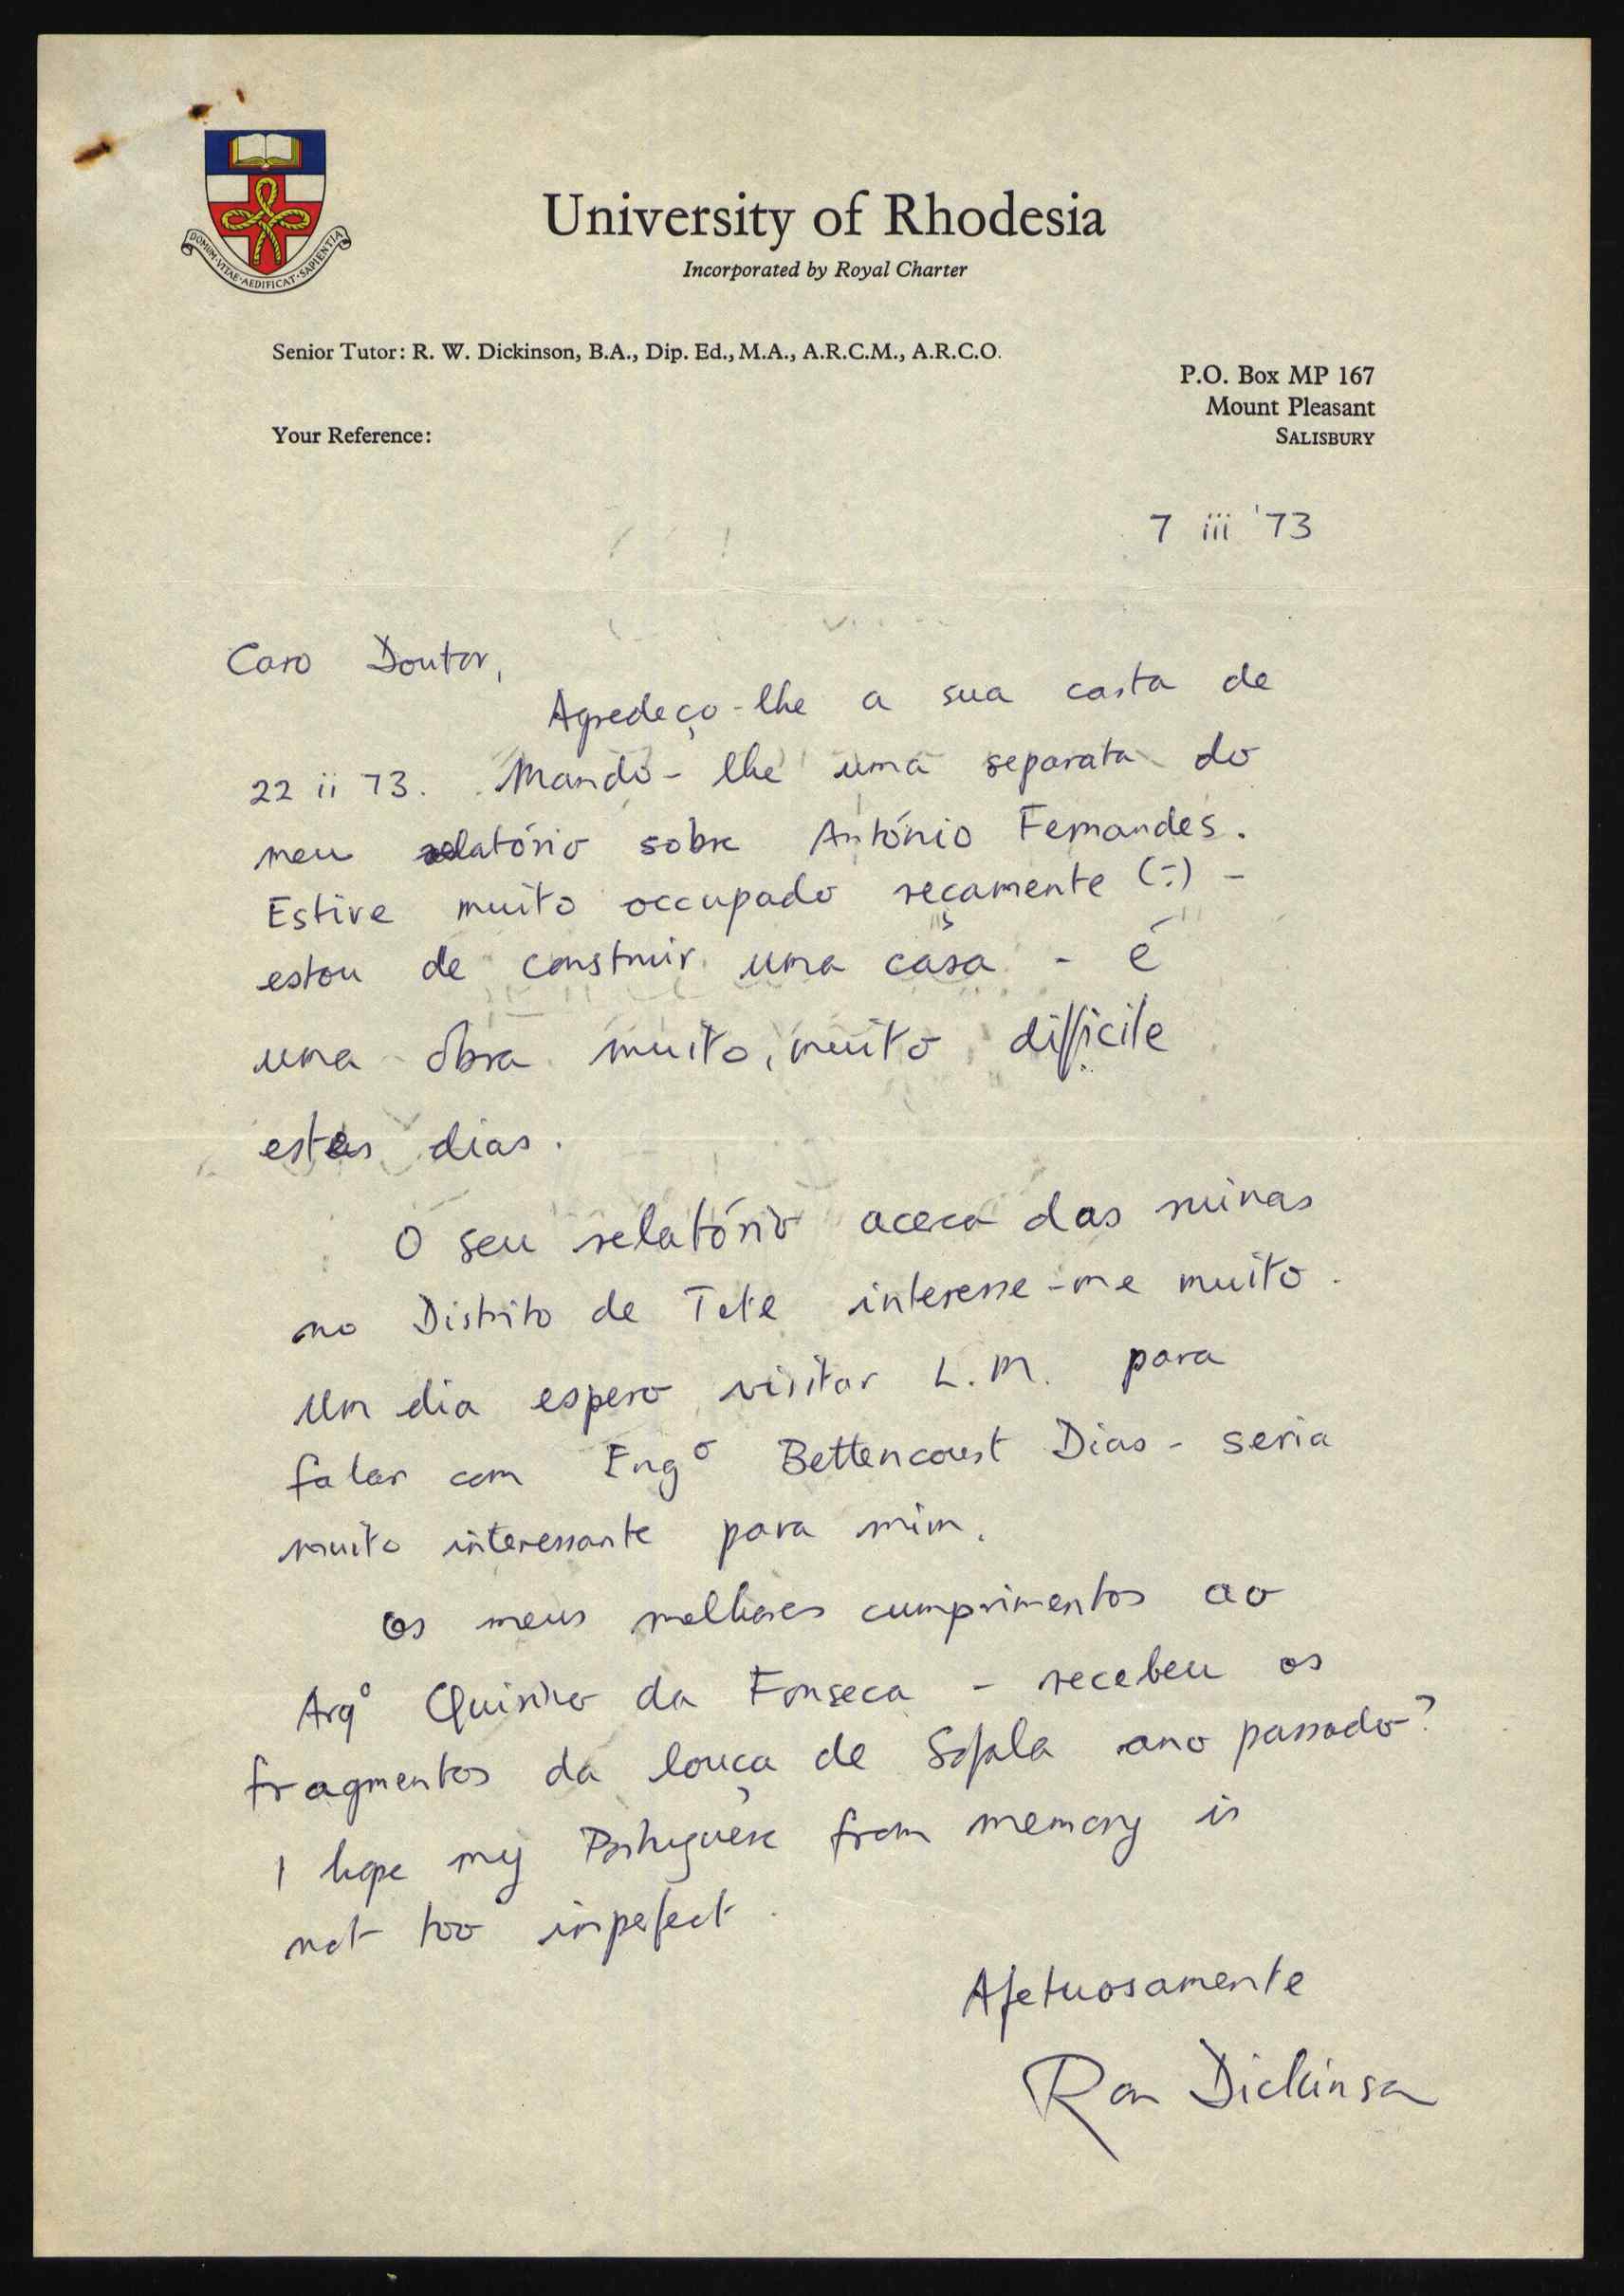 DOMUM·VITAE·AEDIFICAT·SAPIENTIA
University of Rhodesia
Incorporated by Royal Charter
Senior Tutor: R. W. Dickinson, B.A., Dip. Ed., M.A., A.R.C.M., A.R.C.O.
P.O. Box MP 167
Mount Pleasant
SALISBURY
Your Reference:
7 iii '73
Caro Doutor,
Agredeço-lhe a sua carta de
22 ii 73. Mando-lhe uma separata do
meu relatório sobre António Fernandes.
Estive muito occupado reçamente (?) -
estou de construir uma casa - é
uma obra muito, muito difficile
estes dias.
O seu relatório acerca das ruinas
no Distrito de Tete interesse-me muito.
Um dia espero visitar L.M. para
falar com Engº Bettencourt Dias - seria
muito interessante para mim.
Os meus melhores cumprimentos ao
Arqº Quirino da Fonseca - recebeu os
fragmentos da louça de Sofala ano passado?
I hope my Portuguese from memory is
not too imperfect.
Afetuosamente
Ron Dickinson